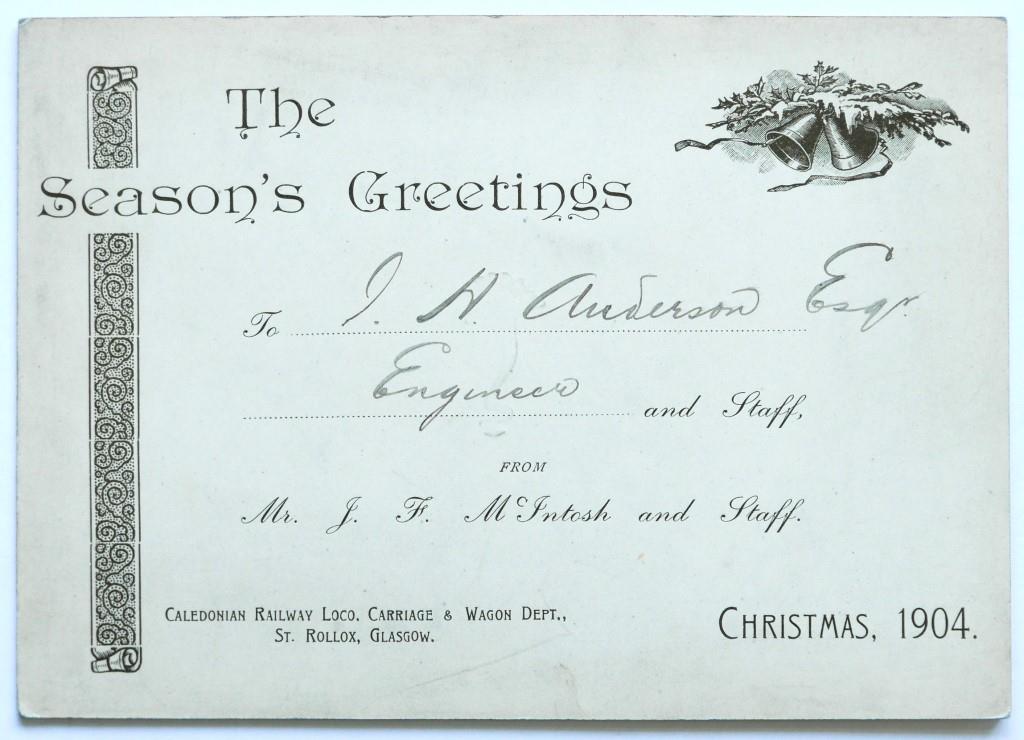 The
Season's Greetings
To J. H. Anderson Esqr.
Engineer and Staff,
FROM
Mr. J. F. McIntosh and Staff.
Caledonian Railway Loco. Carriage & Wagon Dept.,
St. Rollox, Glasgow.
Christmas, 1904.